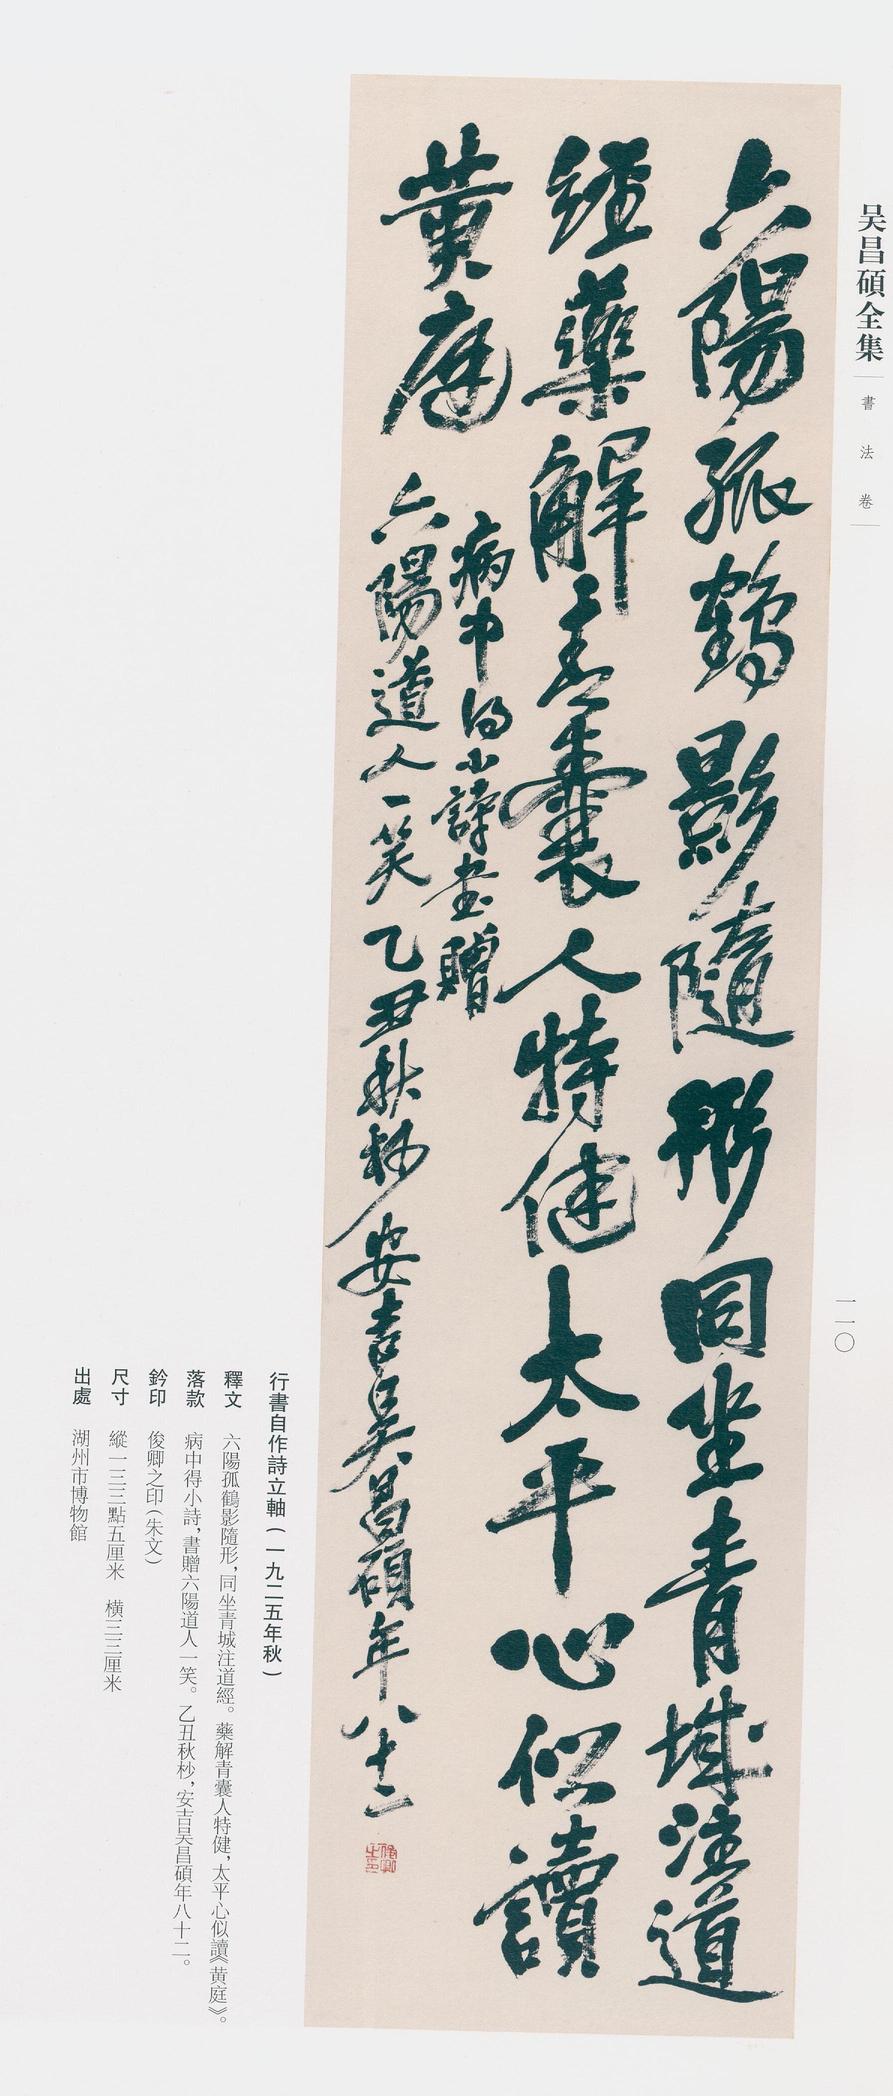 吴昌碩全集
書法卷
一一〇
六陽孤鶴影隨形同坐青城注道
經藥解青囊人特健太平心似讀
黄庭
病中得小詩書贈
六陽道人一笑乙丑秋杪安吉吴昌碩年八十二
俊卿之印
行書自作詩立軸（一九二五年秋）
釋文 六陽孤鶴影隨形，同坐青城注道經。藥解青囊人特健，太平心似讀《黄庭》。
落款 病中得小詩，書贈六陽道人一笑。乙丑秋杪，安吉吴昌碩年八十二。
鈐印 俊卿之印（朱文）
尺寸 縱一三三點五厘米 横三三厘米
出處 湖州市博物館